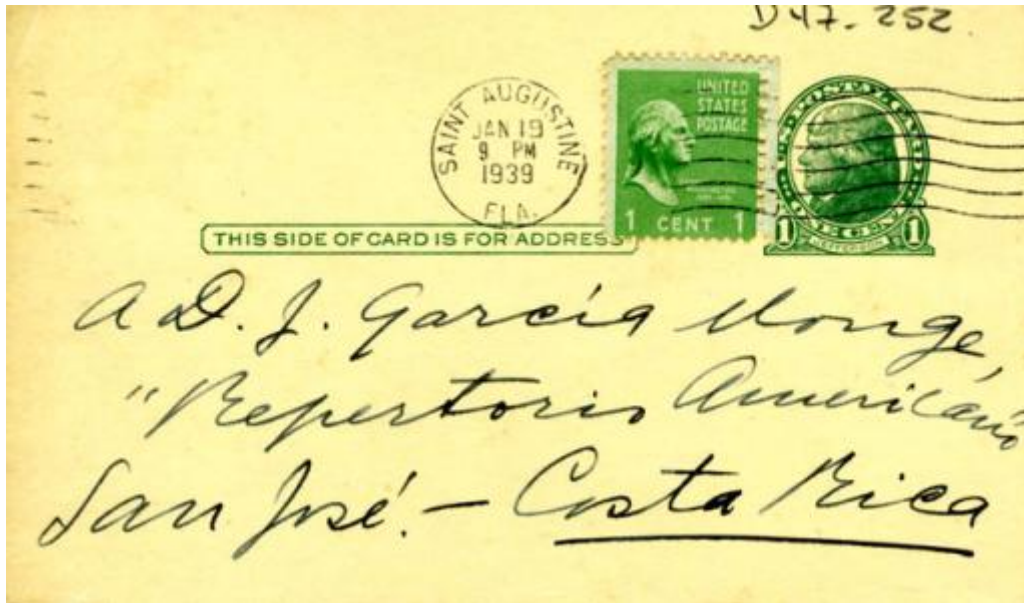 D 47. 252
SAINT AUGUSTINE
JAN 19
9 PM
1939
FLA.
UNITED
STATES
POSTAGE
1 CENT 1
1 1
JEFFERSON
THIS SIDE OF CARD IS FOR ADDRESS
A D. J. García Monge,
"Repertorio Americano
San José. – Costa Rica